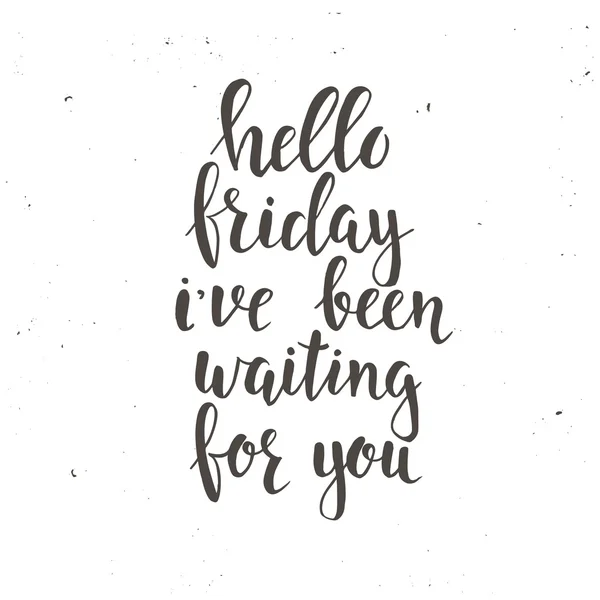 hello
friday
i've been
waiting
for you